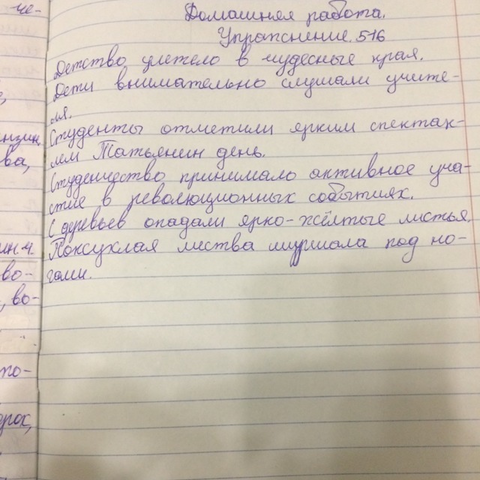 че-
Домашняя работа.
Упражнение 516
Детство улетело в чудесные края.
Дети внимательно слушали учите-
ля.
Студенты отметили ярким спектак-
лем Татьянин день.
Студенчество принимало активное уча-
ва,
стие в революционных событиях.
С деревьев опадали ярко-жёлтые листья
Поксухлая листва шуршала под но-
во-
гами.
, во-